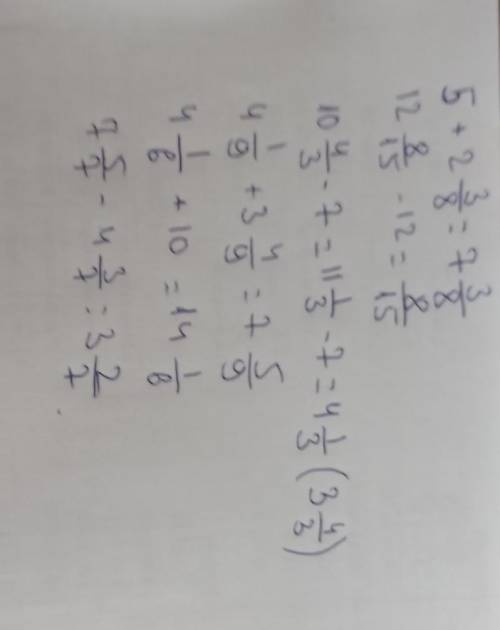 5 + 2 3/8 = 7 3/8
12 8/15 - 12 = 8/15
10 4/3 - 7 = 11 1/3 - 7 = 4 1/3 (3 4/3)
4 1/9 + 3 4/9 = 7 5/9
4 1/6 + 10 = 14 1/6
7 5/7 - 4 3/7 = 3 2/7